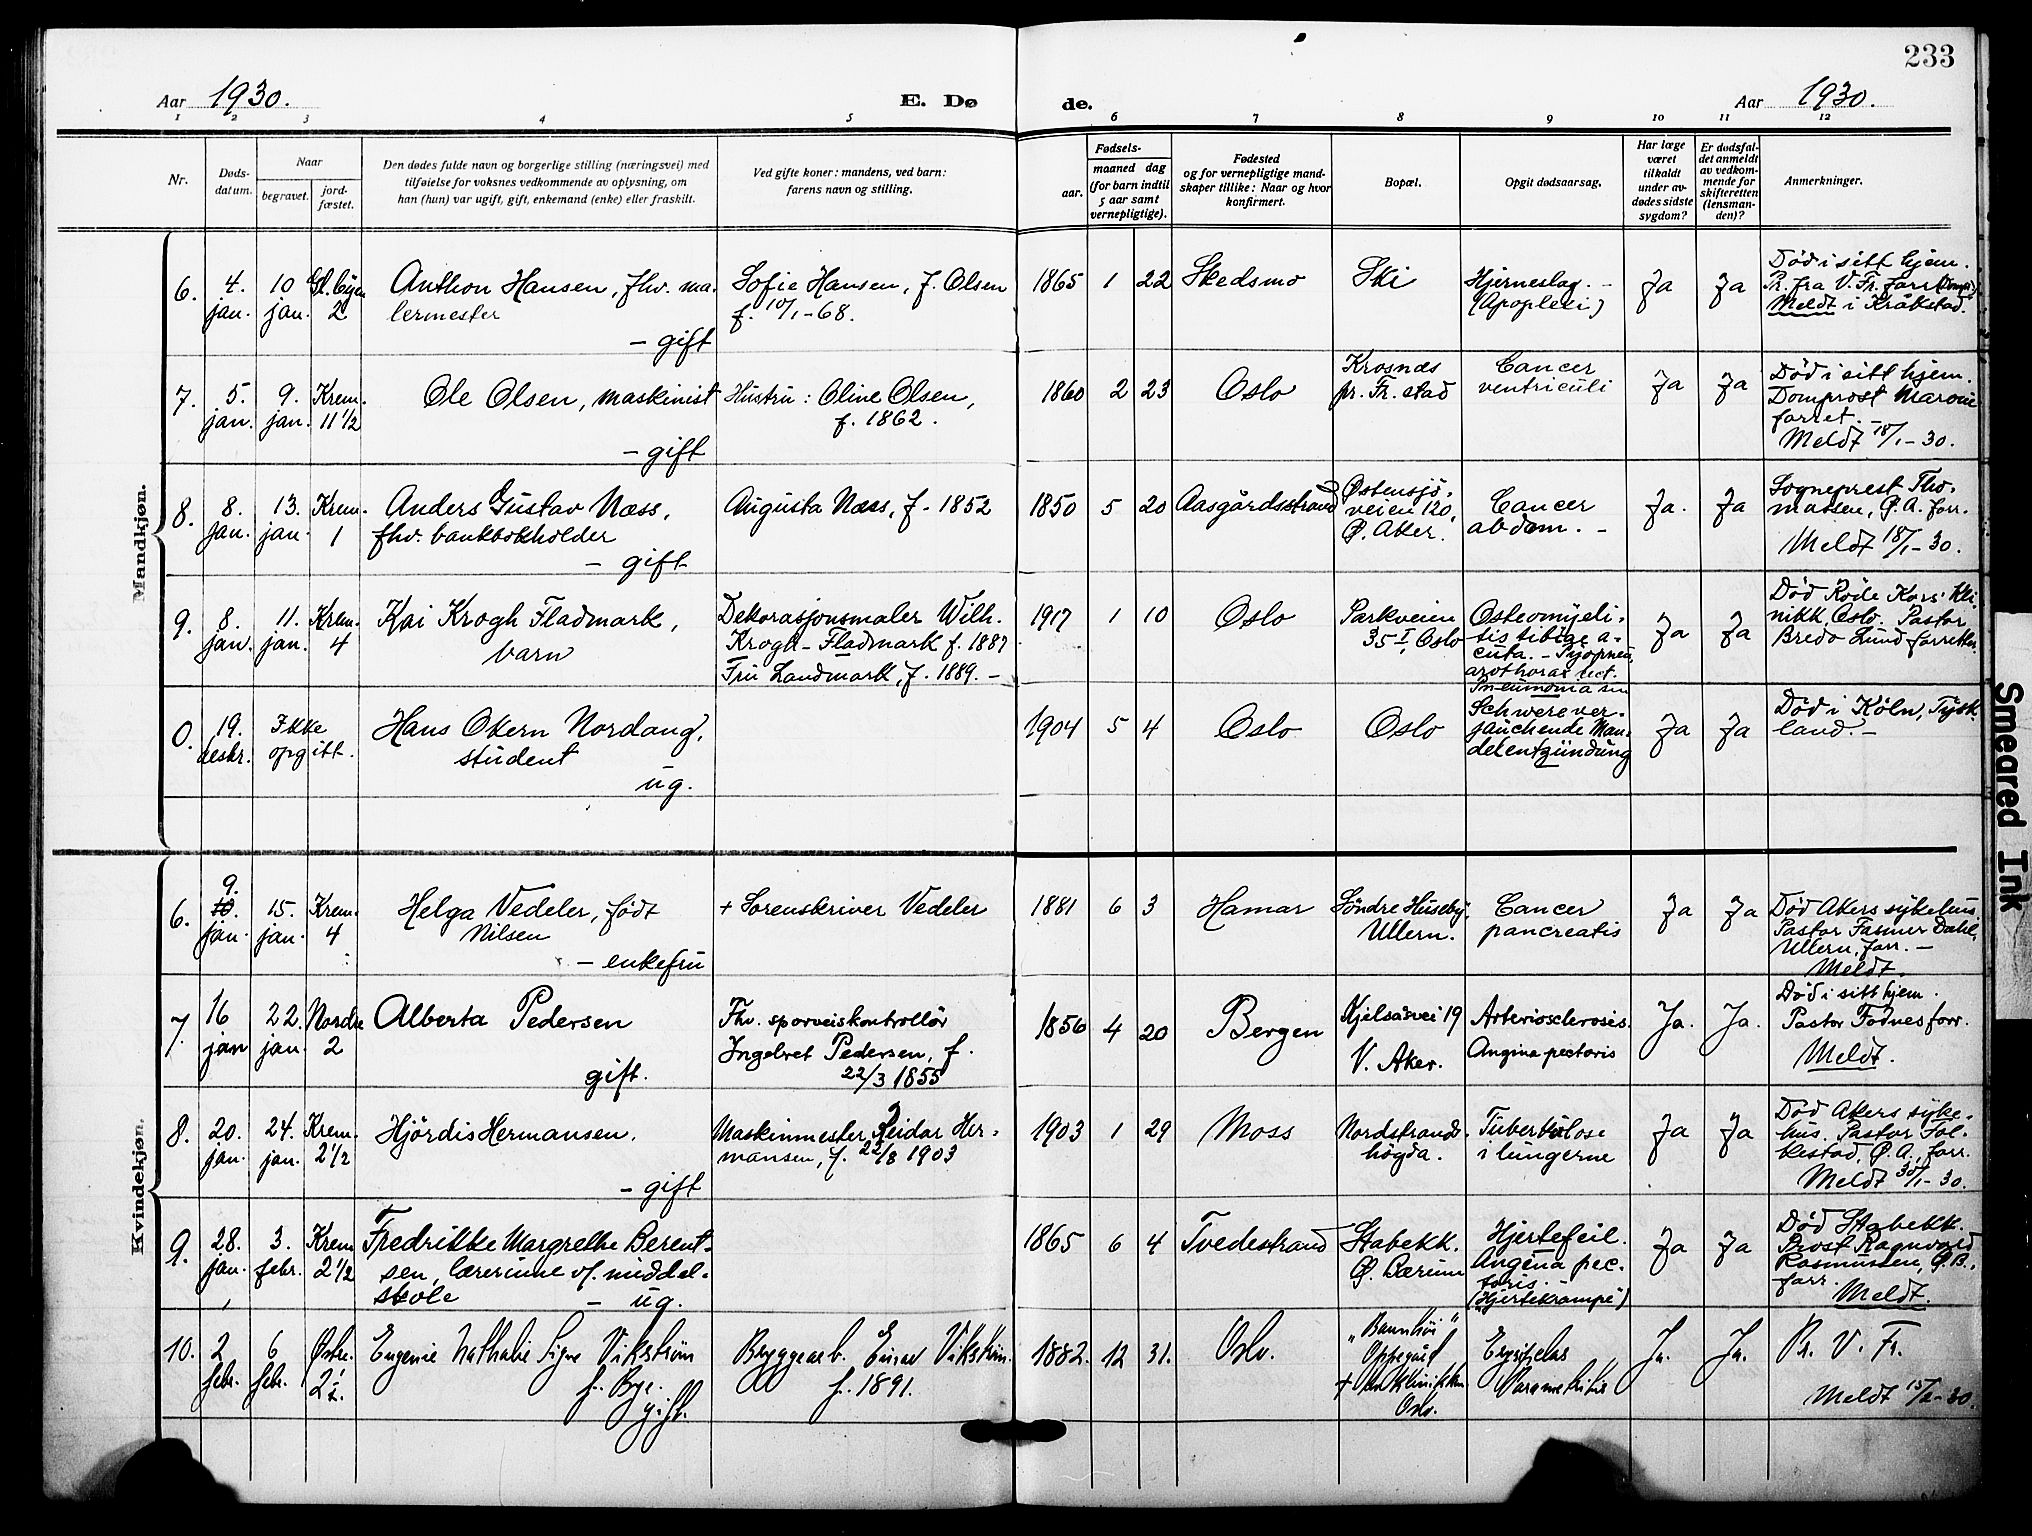 233
Aar 1930.
E. Døde.
Aar 1930.
1 2 3 4 5 6 7 8 9 10 11 12
Nr.
Døds-
datum.
Naar
begravet.
jord-
fæstet.
Den dødes fulde navn og borgerlige stilling (næringsvei) med
tilføielse for voksnes vedkommende av oplysning, om
han (hun) var ugift, gift, enkemand (enke) eller fraskilt.
Ved gifte koner: mandens, ved barn:
farens navn og stilling.
Fødsels-
aar.
maaned dag
(for barn indtil
5 aar samt
vernepligtige).
Fødested
og for vernepligtige mand-
skaper tillike: Naar og hvor
konfirmert.
Bopæl.
Opgit dødsaarsag.
Har læge
været
tilkaldt
under av-
dødes sidste
sygdom?
Er dødsfal-
det anmeldt
av vedkom-
mende for
skifteretten
(lensman-
den)?
Anmerkninger.
Mandkjøn.
6.
4.
jan.
10
jan.
2
Anthon Hansen, fhv. ma-
lermester
- gift
Sofie Hansen, f. Olsen
f. 10/1-68.
1865 1 22
Skedsmo
Ski
Hjerneslag. -
(Apoplexi)
Ja
Ja
Død i sitt hjem.
Pr. fra V. Fr. forr.
Meldt i Kråkstad.
7.
5.
jan.
9.
jan.
Krem.
11 1/2
Ole Olsen, maskinist
- gift
Hustru: Oline Olsen,
f. 1862.
1860 2 23
Oslo
Krosnæs
pr. Fr. stad
Cancer
ventriculi
Ja
Ja
Død i sitt hjem.
Domprost Maroni
forret. -
Meldt 18/1-30.
8.
8.
jan.
13.
jan.
Krem.
1
Anders Gustav Næss,
fhv. bankbokholder
- gift
Augusta Næss, f. 1852
1850 5 20
Aasgårdsstrand
Østensjø-
veien 120,
Ø. Aker.
Cancer
abdom. -
Ja.
Ja
Sogneprest Tho-
massen, Ø. A. forr.
Meldt 18/1-30.
9.
8.
jan.
11.
jan.
Krem.
4
Kai Krogh Fladmark,
barn
Dekorasjonsmaler Wilh.
Krogh-Fladmark f. 1887
Fru Landmark, f. 1889. -
1917 1 10
Oslo
Parkveien
35 I, Oslo
Osteomyeli-
tis tibiae a-
cuta. - Pyopneu
Pneumonia sin
Ja
Ja
Død Røde Kors Kli-
nikk, Oslo. Pastor
Bredo Lund forrettn.
0.
19.
desbr.
Ikke
opgitt.
Hans Okern Nordang,
student
ug.
1904 5 4
Oslo
Oslo
Schwere ver-
jauchende Man-
delentzündung
Ja
Ja
Død i Köln, Tysk-
land. -
Kvindekjøn.
6.
9.
10.
jan.
15.
jan.
Krem.
4
Helga Vedeler, født
Nilsen
- enkefru
+ Sorenskriver Vedeler
1881 6 3
Hamar
Söndre Huseby,
Ullern.
Cancer
pancreatis
Ja
Ja
Død Akers sykehus.
Pastor Farmer Dahl,
Ullern, forr. -
Meldt.
7.
16
jan
22.
jan.
Nordre
2
Alberta Pedersen
gift.
Fhv. sporveiskontrollör
Ingebret Pedersen, f.
22/3 1855
1856 4 20
Bergen
Kjelsåsvei 19
V. Aker.
Arteriosclerosis.
Angina pectoris
Ja.
Ja.
Död i sitt hjem.
Pastor Fodnes forr.
Meldt.
8.
20.
jan.
24.
jan.
Krem.
2 1/2
Hjördis Hermansen.
- gift
Maskinmester Reidar Her-
mansen, f. 22/8 1903
1903 1 29
Moss
Nordstrands-
högda.
Tuberkulose
i lungerne
Ja
Ja
Död Akers syke-
hus. Pastor Fal-
kestad, Ø. A., forr.
Meldt 30/1-30.
9.
28.
jan.
3.
febr.
Krem
2 1/2
Fredrikke Margrethe Berent-
sen, lærerinne v/. middel-
skole
- ug.
1865 6 4
Tvedestrand
Stabekk.
Ø. Bærum
Hjertefeil.
Angina pec-
toris. -
(Hjertekrampe)
Ja
Ja
Død Stabekk.
Prost Ragnvald
Rasmussen, Ø. B.,
forr.
Meldt.
10.
2
febr.
6
febr.
Østre.
2 1/2.
Eugenie Nathalie Signe Vikstrøm
f. Bye.
gift.
Byggearb. Einar Vikstrøm.
f. 1891.
1882. 12 31.
Oslo.
Oppegård
Oslo.
Erysipelas
Parametritis
Ja.
Ja.
Pr. V. Fr.
Meldt 15/2-30
Smeared Ink